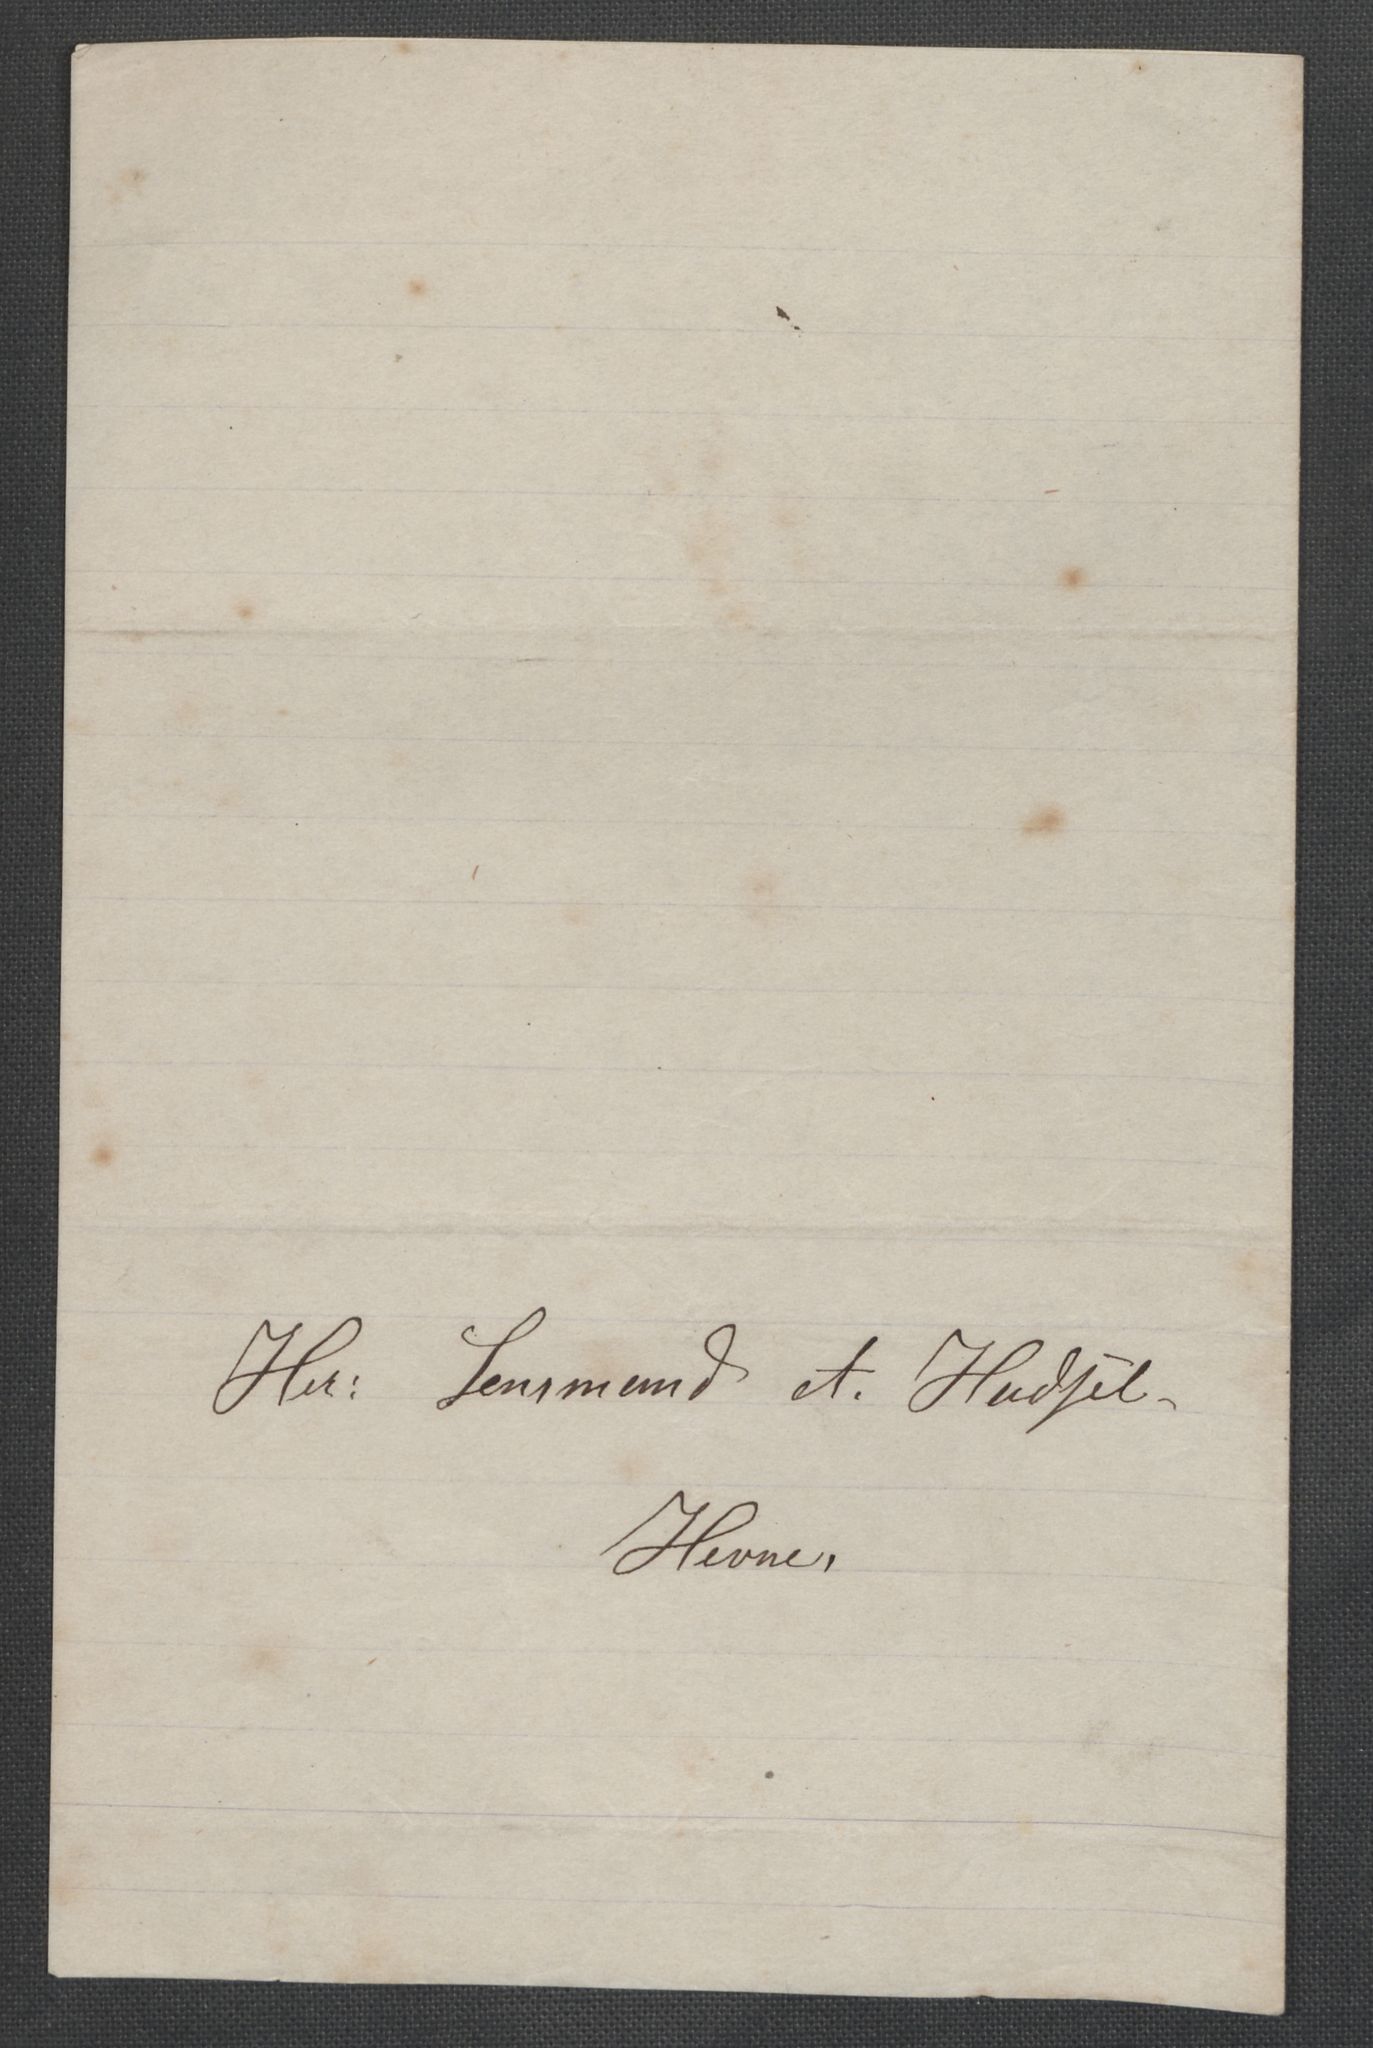 Her: Lensmand A. Hadsel-
Hevne.